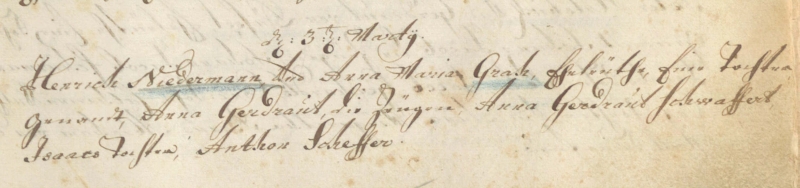 d. 3t. Martÿ.
Henrich Niedermann und Anna Maria Grah, Eheleüthe, Eine Tochter
genandt, Anna Gerdraut, die Zeugen Anna Gerdraut Schwaffert
Isaacs Tochter, Anthon Scheffer.